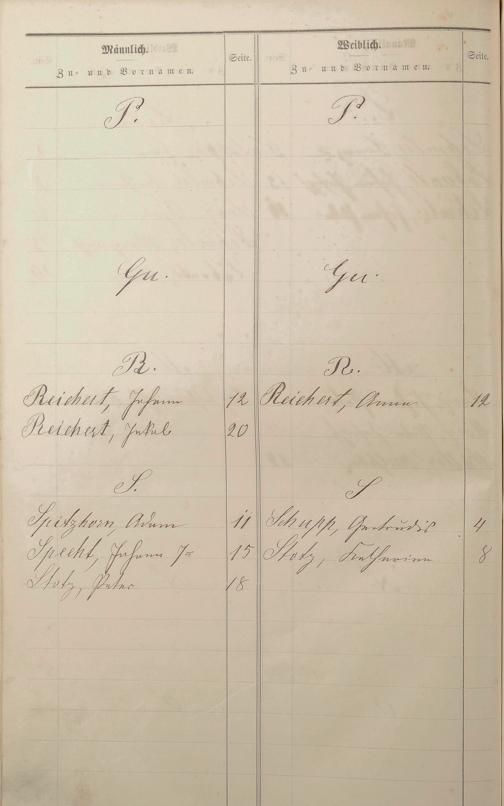 Männlich. Seite. Weiblich. Seite.
Zu- und Vornamen. Zu- und Vornamen.
P. P.
Qu. Qu.
R. R.
Reichert, Johann 12 Reichert, Anna 12
Reichert, Jakob 20
S. S
Spitzhorn, Adam 11 Schupp, Gertrudis 4
Specht, Johann 15 Stotz, Katharina 8
Stotz, Peter 18